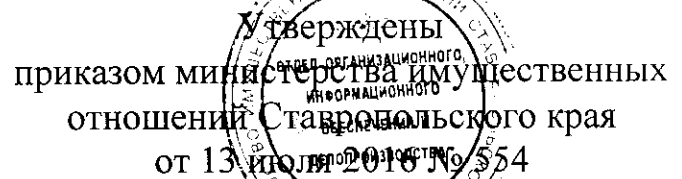 Утверждены
приказом министерства имущественных
отношений Ставропольского края
от 13 июля 2016 № 554
ОТДЕЛ ОРГАНИЗАЦИОННОГО,
ИНФОРМАЦИОННОГО
ОБЕСПЕЧЕНИЯ И
ДЕЛОПРОИЗВОДСТВА